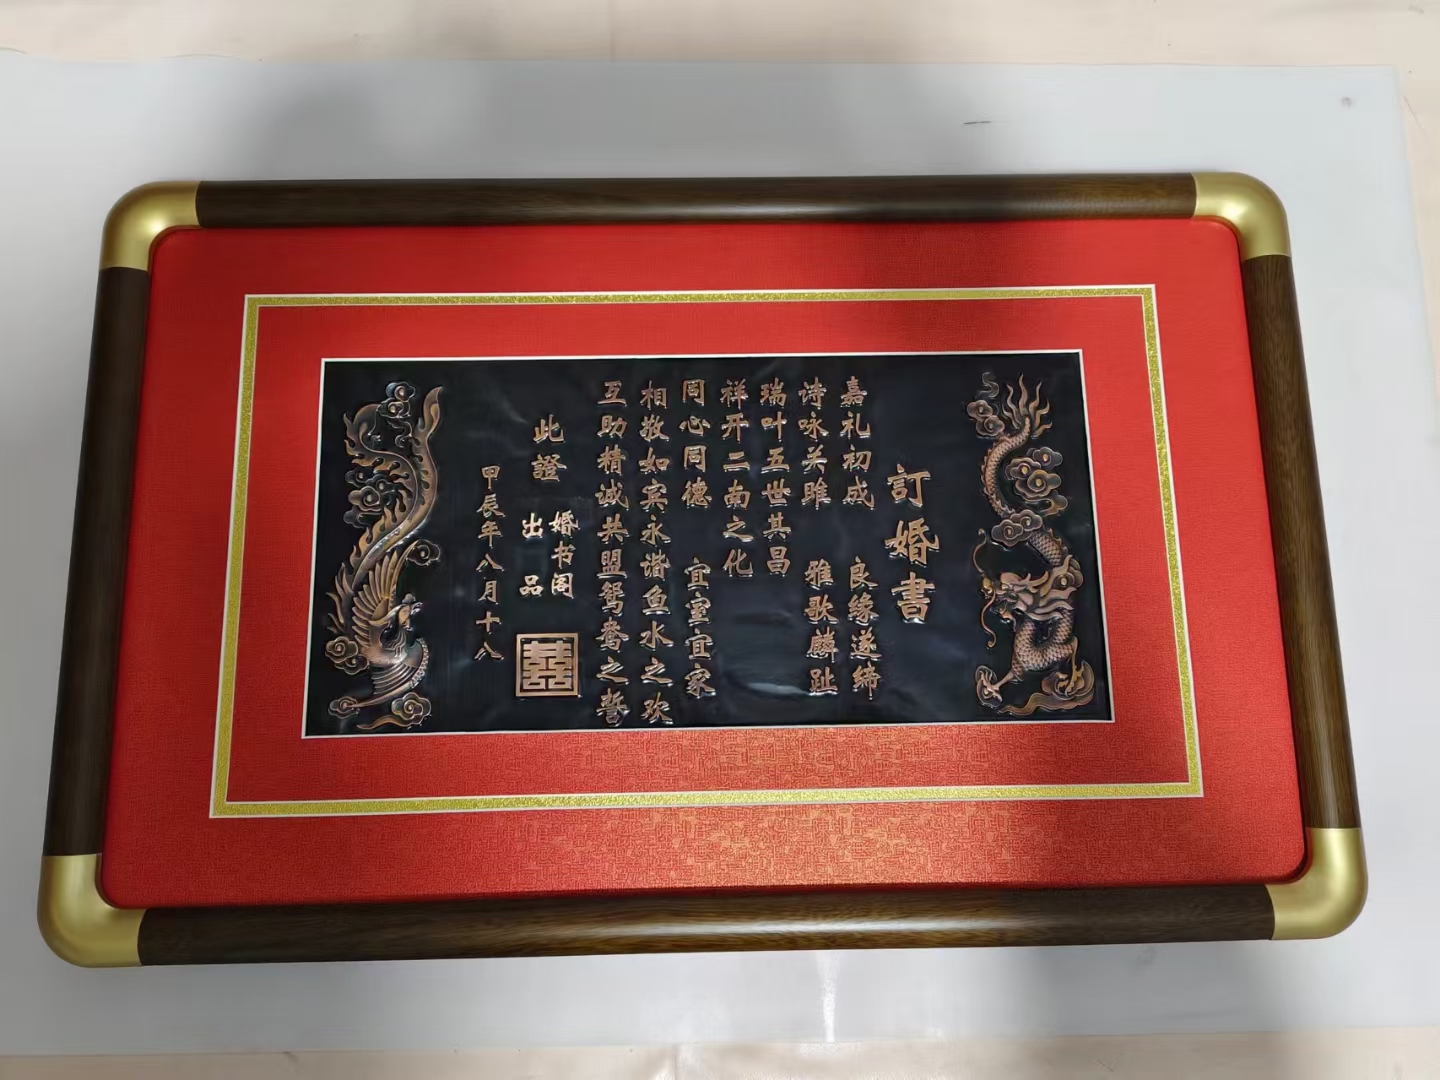 訂婚書
嘉礼初成 良缘遂缔
诗咏关雎 雅歌麟趾
瑞叶五世其昌
祥开二南之化
同心同德 宜室宜家
相敬如宾永谐鱼水之欢
互助精诚共盟鸳鸯之誓
此證
婚书阁
出品
囍
甲辰年八月十八